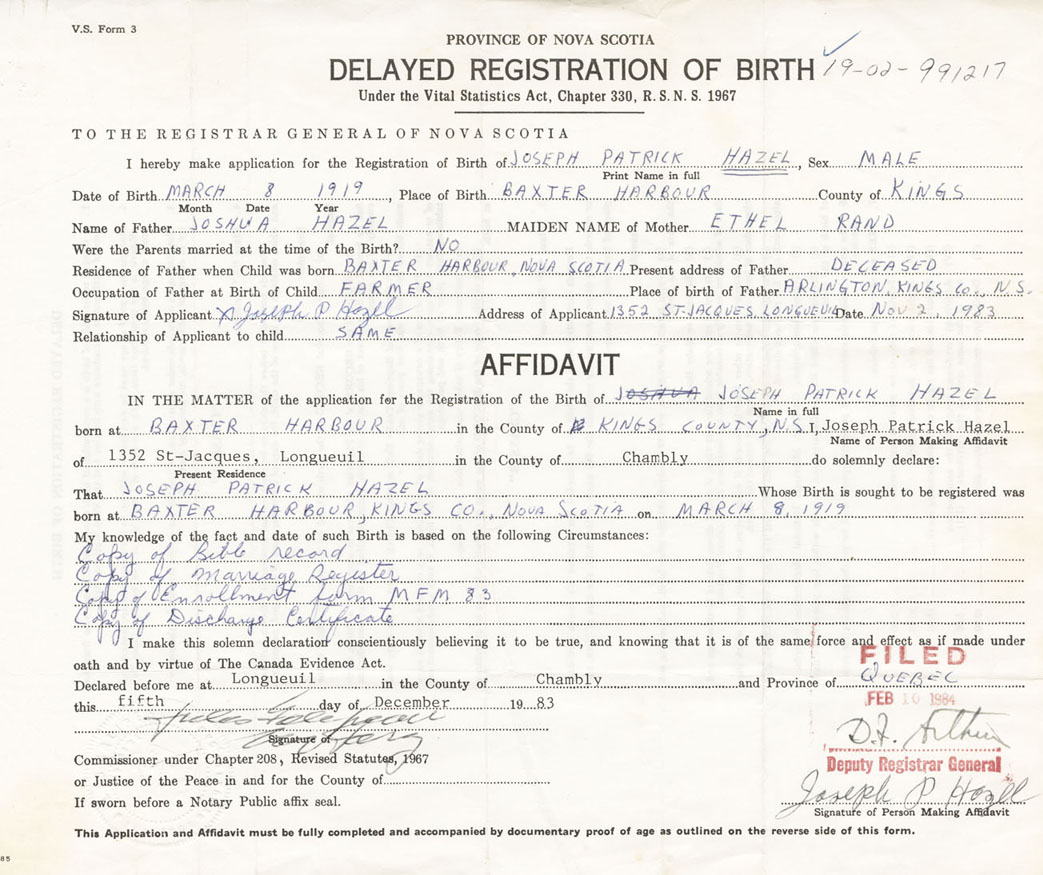 V.S. Form 3
PROVINCE OF NOVA SCOTIA
DELAYED REGISTRATION OF BIRTH 19-02-991217
Under the Vital Statistics Act, Chapter 330, R.S.N.S. 1967
TO THE REGISTRAR GENERAL OF NOVA SCOTIA
I hereby make application for the Registration of Birth of JOSEPH PATRICK HAZEL, Sex MALE
Print Name in full
Date of Birth MARCH 8 1919, Place of Birth BAXTER HARBOUR County of KINGS
Month Date Year
Name of Father JOSHUA HAZEL MAIDEN NAME of Mother ETHEL RAND
Were the Parents married at the time of the Birth? NO
Residence of Father when Child was born BAXTER HARBOUR, NOVA SCOTIA Present address of Father DECEASED
Occupation of Father at Birth of Child FARMER Place of birth of Father ARLINGTON, KINGS CO., N.S.
Signature of Applicant X Joseph P Hazell Address of Applicant 1352 ST-JACQUES, LONGUEUIL Date NOV 2, 1983
Relationship of Applicant to child SAME
AFFIDAVIT
IN THE MATTER of the application for the Registration of the Birth of JOSHUA JOSEPH PATRICK HAZEL
Name in full
born at BAXTER HARBOUR in the County of KINGS COUNTY, N.S. I, Joseph Patrick Hazel
Name of Person Making Affidavit
of 1352 St-Jacques, Longueuil in the County of Chambly do solemnly declare:
Present Residence
That JOSEPH PATRICK HAZEL Whose Birth is sought to be registered was
born at BAXTER HARBOUR, KINGS CO., NOVA SCOTIA on MARCH 8, 1919
My knowledge of the fact and date of such Birth is based on the following Circumstances:
Copy of Bible record
Copy of Marriage Register
Copy of Enrollment form MFM 83
Copy of Discharge Certificate
I make this solemn declaration conscientiously believing it to be true, and knowing that it is of the same force and effect as if made under
oath and by virtue of The Canada Evidence Act.
FILED
Declared before me at Longueuil in the County of Chambly and Province of QUEBEC
this fifth day of December 1983
FEB 10 1984
Signature of
Deputy Registrar General
Commissioner under Chapter 208, Revised Statutes, 1967
or Justice of the Peace in and for the County of
If sworn before a Notary Public affix seal.
Joseph P Hazell
Signature of Person Making Affidavit
This Application and Affidavit must be fully completed and accompanied by documentary proof of age as outlined on the reverse side of this form.
85